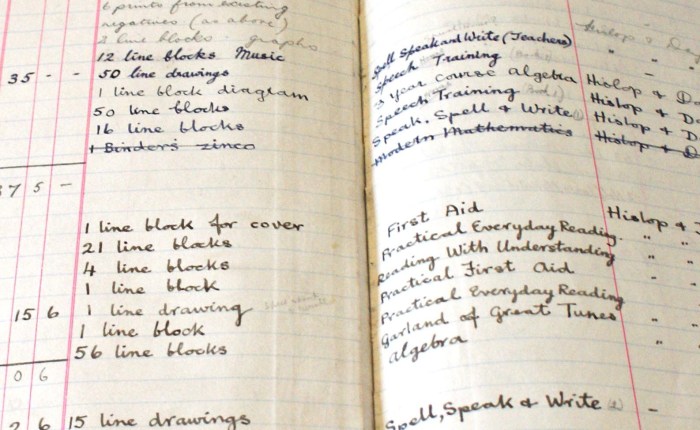 6 prints from existing
negatives (as above)
2 line blocks - graphs
12 line blocks Music
35 - - 50 line drawings
1 line block diagram
50 line blocks
16 line blocks
1 Binder's zinco
7 5 -
1 line block for cover
21 line blocks
4 line blocks
1 line block
15 6 1 line drawing
1 line block
56 line blocks
0 6
2 6 15 line drawings
Hislop & Day
Spell Speak and Write (Teachers) " "
Speech Training " -
3 year Course Algebra Hislop & D
Speech Training Hislop & Da
Speak, Spell & Write Hislop & D
Modern Mathematics Hislop & D
First Aid Hislop &
Practical Everyday Reading " "
Reading With Understanding " "
Practical First Aid "
Practical Everyday Reading "
Garland of Great Tunes "
Algebra "
Spell, Speak & Write -